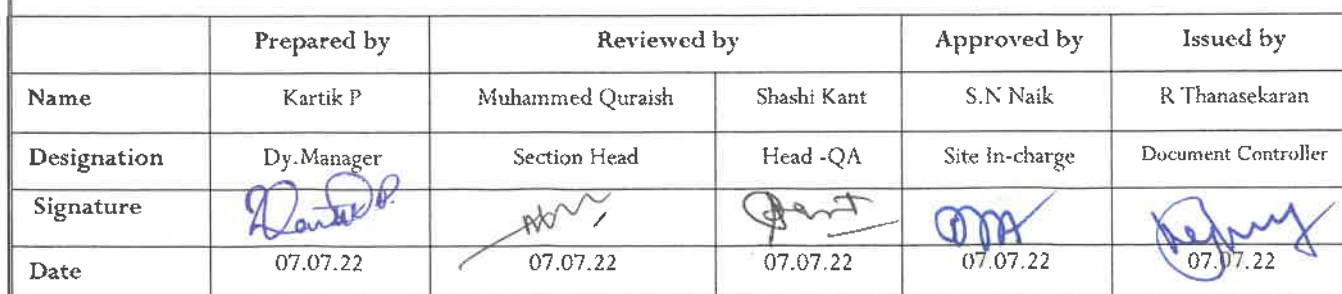 Prepared by Reviewed by Approved by Issued by
Name Kartik P Muhammed Quraish Shashi Kant S.N Naik R Thanasekaran
Designation Dy.Manager Section Head Head -QA Site In-charge Document Controller
Signature Kartik P.
Date 07.07.22 07.07.22 07.07.22 07.07.22 07.07.22